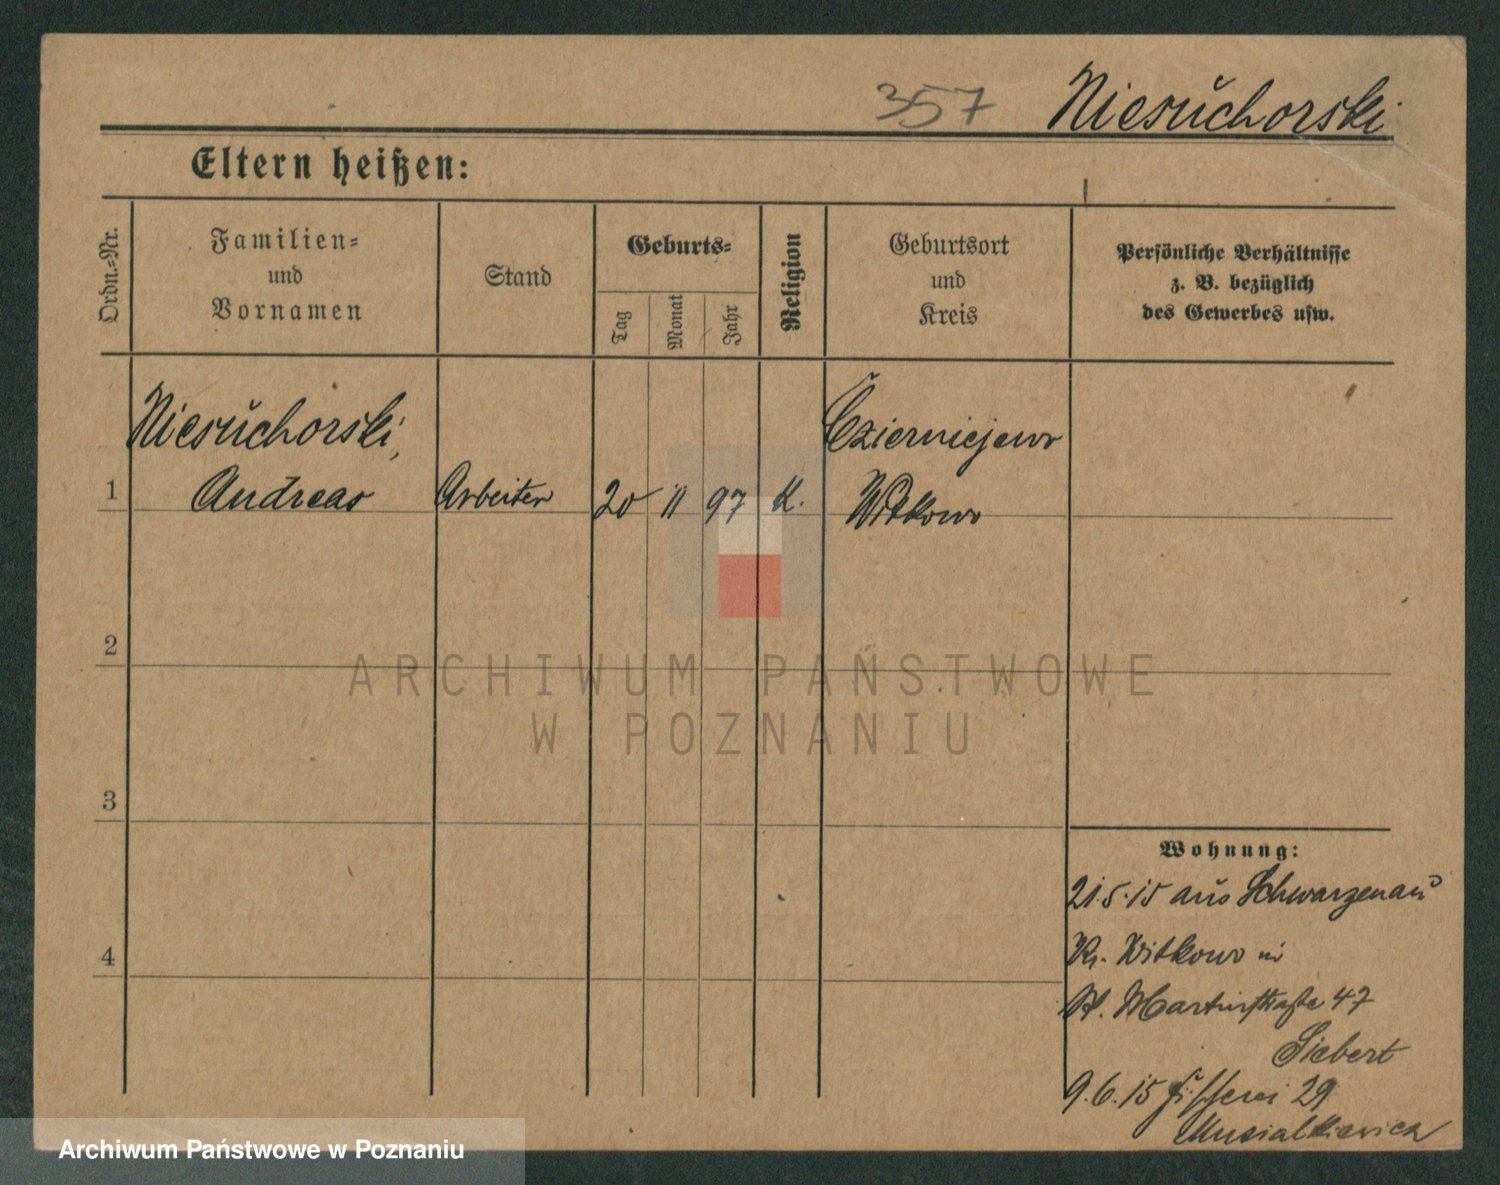 357 Niesuchorski
Eltern heißen:
Ordn.-Nr.
Familien-
und
Vornamen
Stand
Geburts-
Tag
Monat
Jahr
Religion
Geburtsort
und
Kreis
Persönliche Verhältnisse
z. B. bezüglich
des Gewerbes usw.
Niesuchorski,
Czierniejewo
1 Andreas Arbeiter 20 11 97 K. Witkowo
2
3
4
Wohnung:
21.5.15 aus Schwarzenau
Kr. Witkowo in
St. Martinstraße 47
Siebert
9.6.15 Fischerei 29
Musialkiewicz
ARCHIWUM PAŃSTWOWE
W POZNANIU
Archiwum Państwowe w Poznaniu